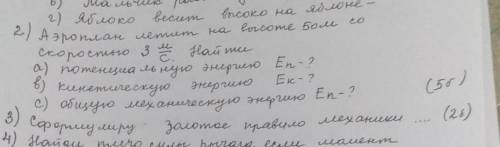 в) Мальчик
г) Яблоко весит высоко на яблоне -
2) Аэроплан летит на высоте 50м со
скоростью 3 м/с. Найти
а) потенциальную энергию Eп-?
в) кинетическую энергию Eк-?
с) общую механическую энергию Eп-? (5б)
3) Сформулиру Золотое правило механики .... (2б)
4) Найди плечо силы рычага если момент